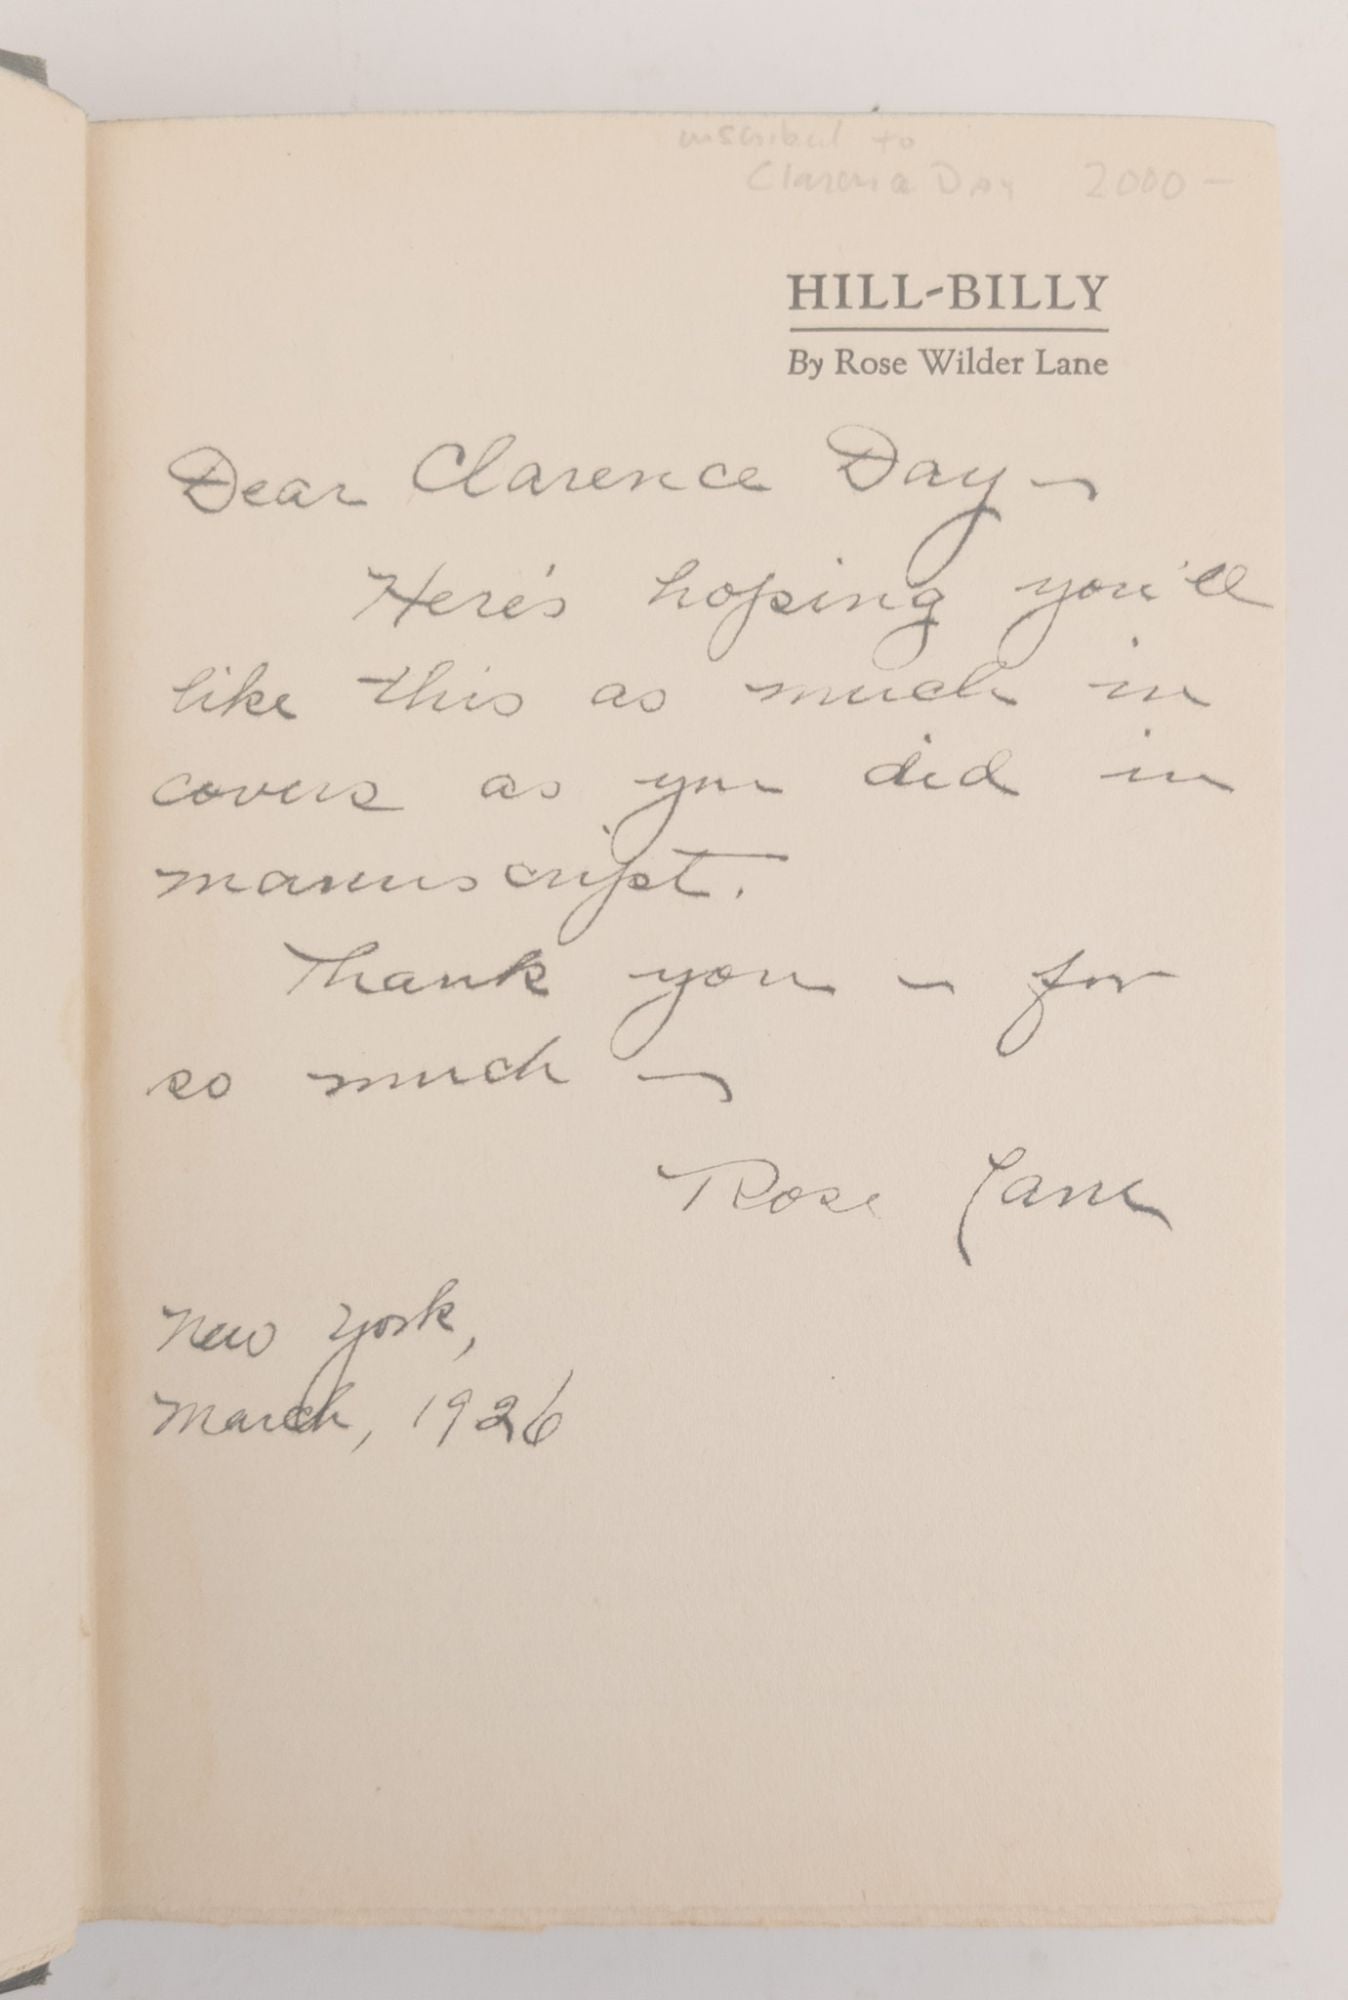 inscribed to
Clarence Day 2000 -
HILL-BILLY
By Rose Wilder Lane
Dear Clarence Day -
Here's hoping you'll
like this as much in
covers as you did in
manuscript.
Thank you - for
so much -
Rose Lane
New York,
March, 1926